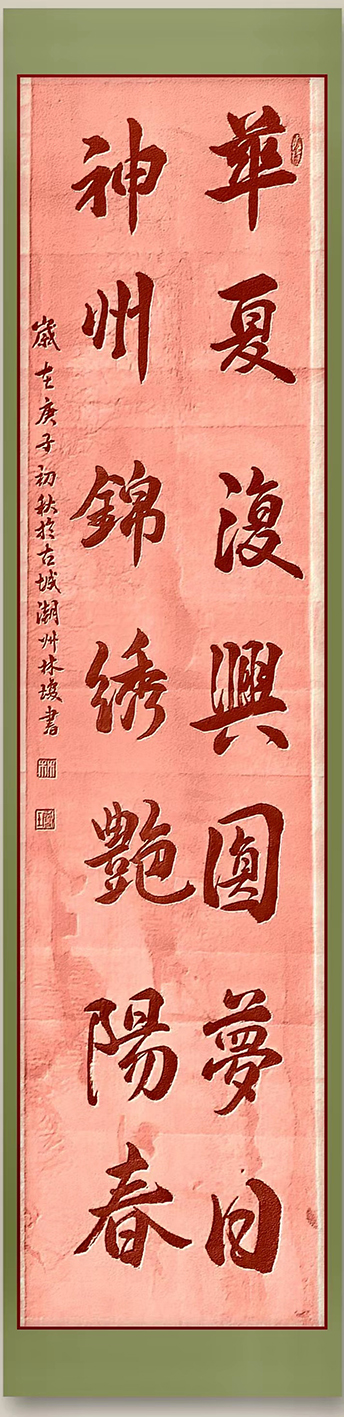 華夏復興圓夢日
神州錦绣艷陽春
歲在庚子初秋於古城潮州林瓊書